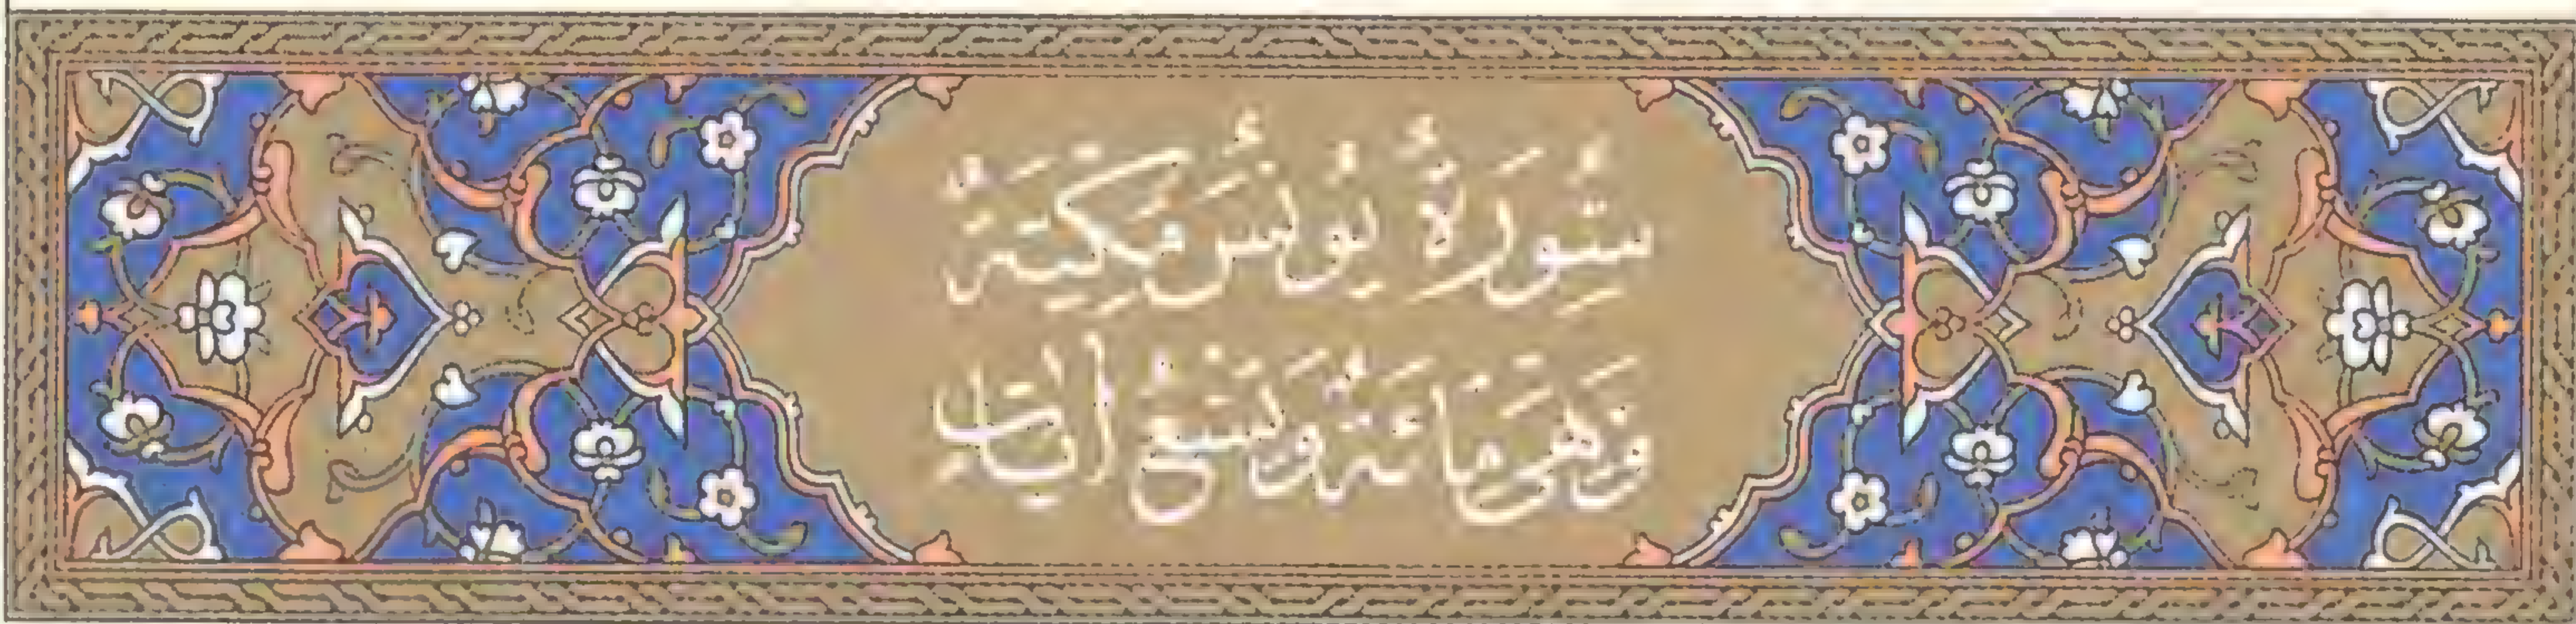 سُورَةُ يُونُسَ مَكِّيَّةٌ
وَهِىَ مِائَةٌ وَتِسْعُ اٰيَاتٍ